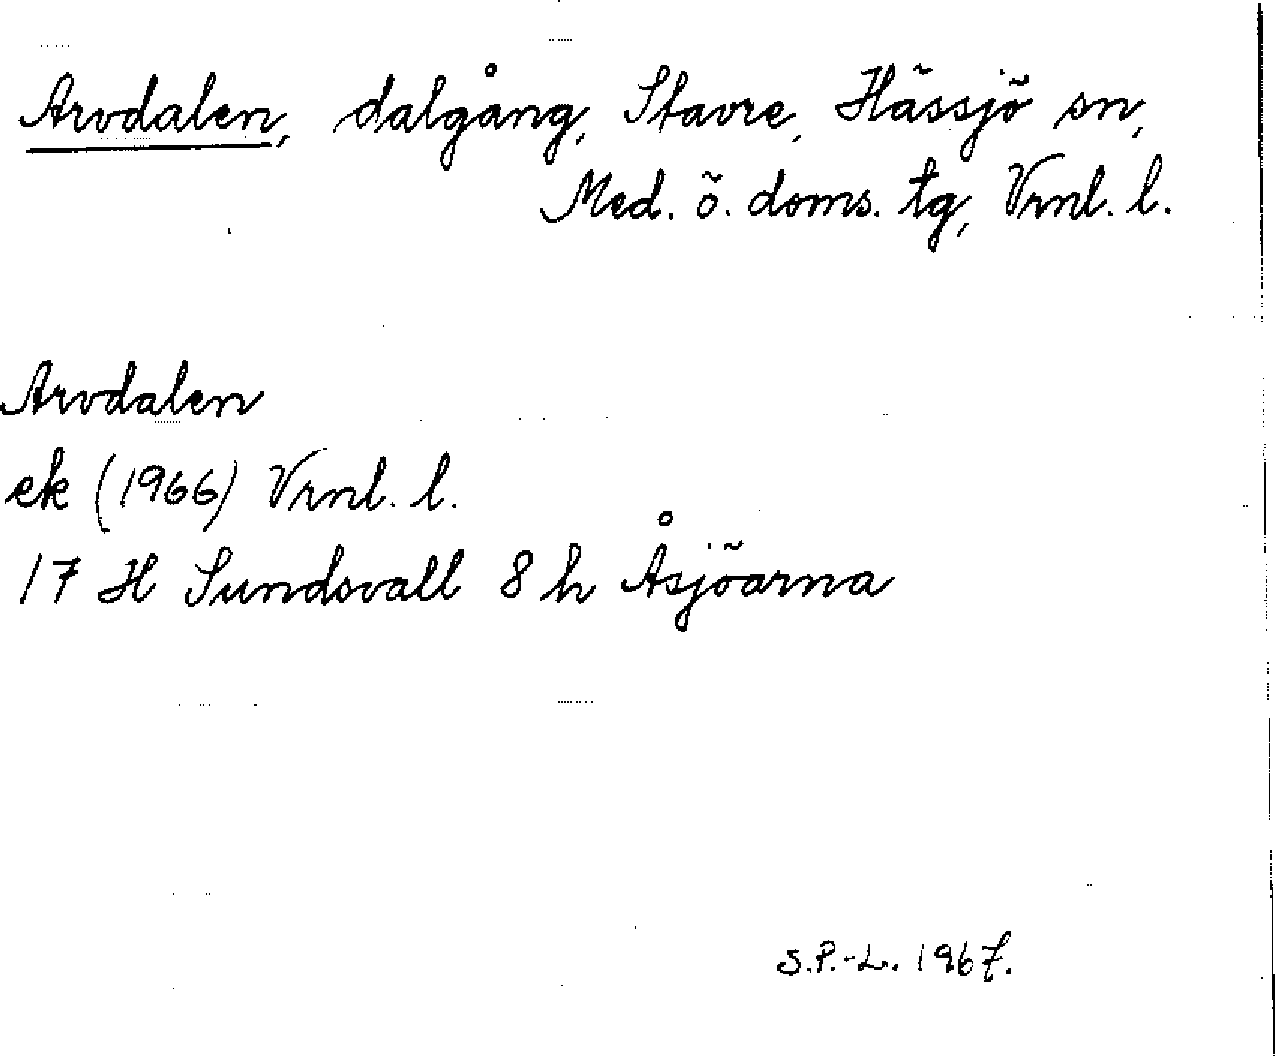 Arvdalen, dalgång, Stavre, Hässjö sn,
Med. ö. doms. tg, Vrnl. l.
Arvdalen
ek (1966) Vrnl. l.
17 H Sundsvall 8 h Åsjöarna
S.P.-L. 1967.